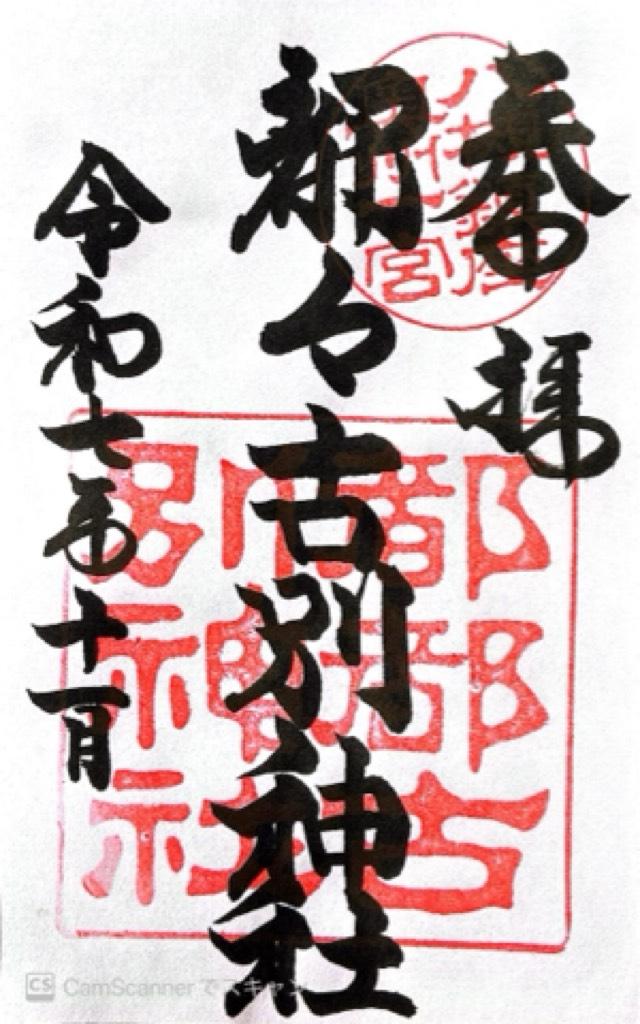 奉拝
都々古別神社
令和七年十一月
都都古
別神社
CS CamScanner でスキャン